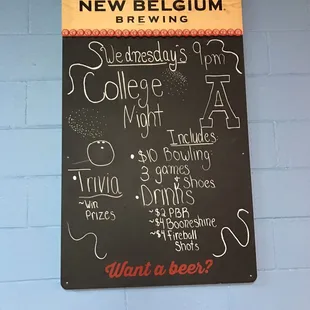 NEW BELGIUM
BREWING
Wednesday's 9pm
College
Night
A
Includes
• $10 Bowling
3 games
& Shoes
• Trivia
~Win
Prizes
• Drinks
~$2 PBR
~$4 Booneshine
~$4 Fireball
Shots
Want a beer?